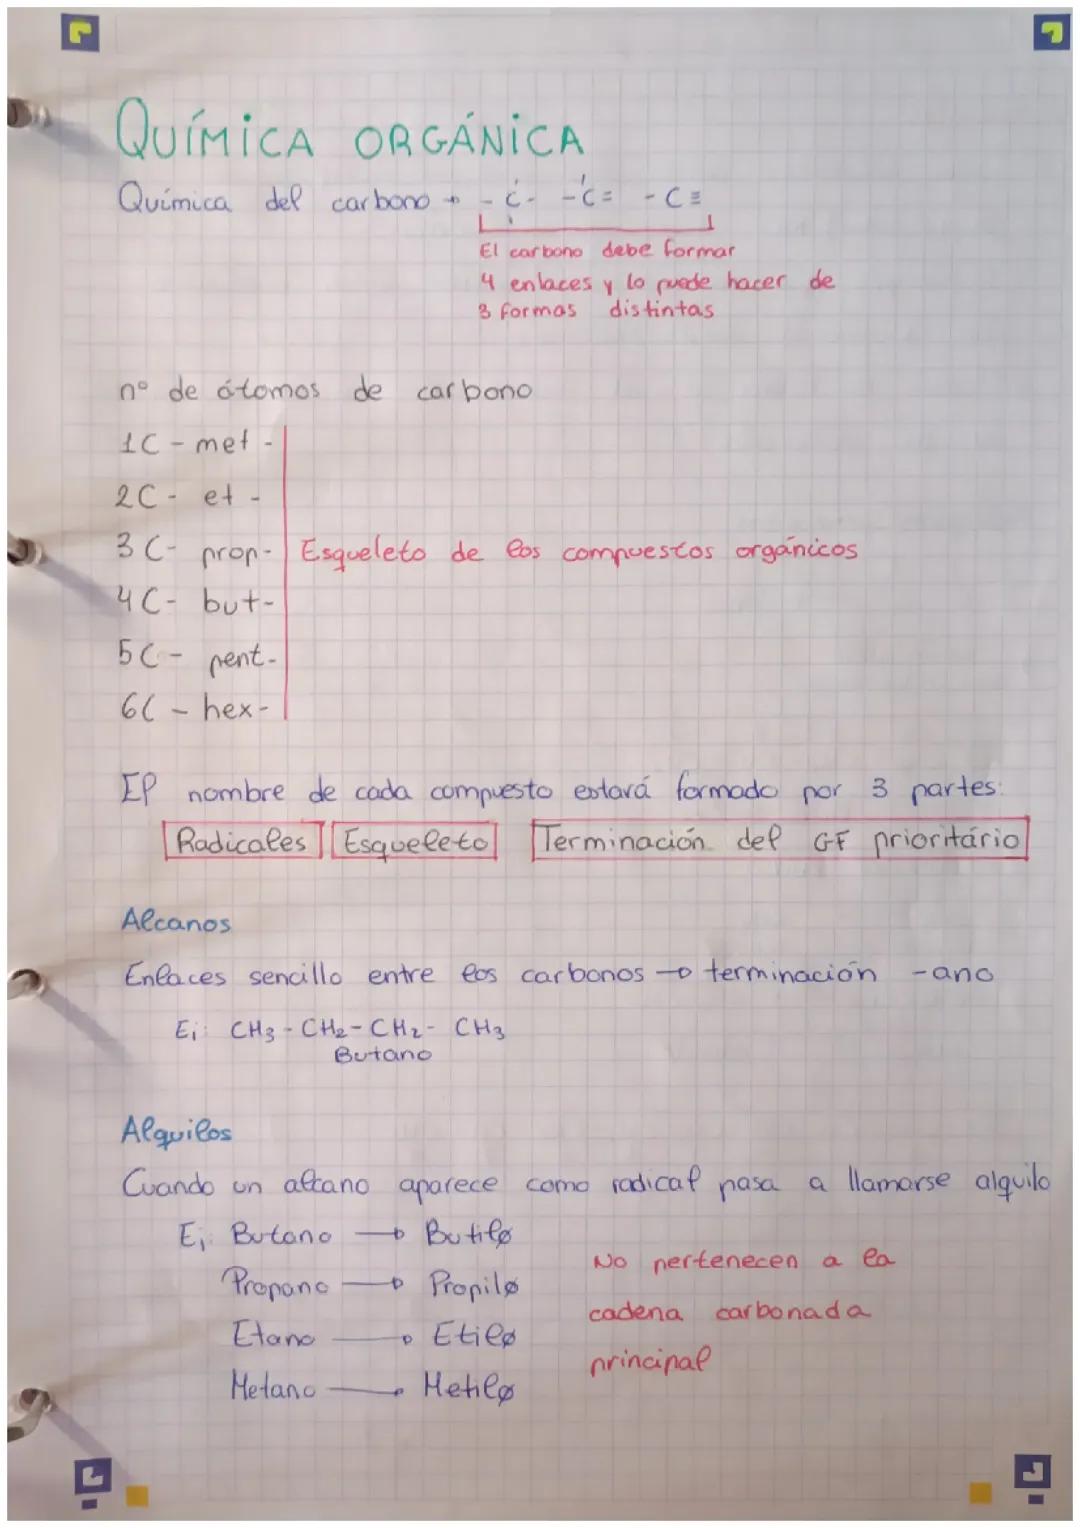 QUÍMICA ORGÁNICA
Química del carbono → -C- -C= -C≡
El carbono debe formar
4 enlaces y lo puede hacer de
3 formas distintas
nº de átomos de carbono
1C - met -
2C - et -
3C - prop- Esqueleto de los compuestos orgánicos
4C - but-
5C - pent-
6C - hex-
El nombre de cada compuesto estará formado por 3 partes:
Radicales Esqueleto Terminación del GF prioritário
Alcanos
Enlaces sencillo entre los carbonos → terminación -ano
Ej: CH3 - CH2 - CH2 - CH3
Butano
Alquilos
Cuando un alcano aparece como radical pasa a llamarse alquilo
Ej: Butano → Butilø
Propano → Propilø
Etano → Etilø
Metano → Metilø
No pertenecen a la
cadena carbonada
principal